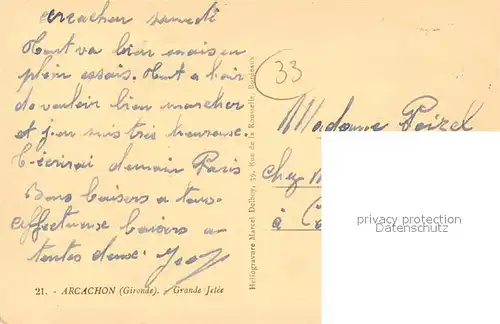 Arcachon samedi
Tout va bien mais en
plein essais. Tout a l'air
de vouloir bien marcher
et j'en suis très heureuse.
T'écrirai demain Paris
Bons baisers a tous.
Affectueuse baisers a
toutes deux.
21. - ARCACHON (Gironde). - Grande Jetée
Héliogravure Marcel Delboy, 59, Rue de la Rousselle, Bordeaux
33
Madame Poizel
chez
à
privacy protection
www.oldthing.de